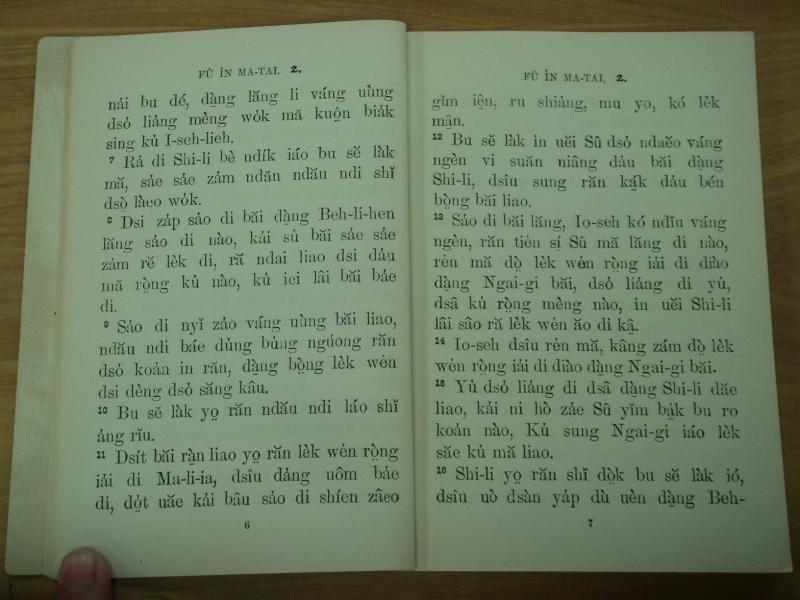 FÛ ÍN MA-TAI, 2.
nải bu dé, dạ̀ng lăng li váng uùng
dsỏ liảng mèng wỏk mă kuộn biảk
sing kủ I-seh-lieh.
7 Rả di Shi-li bè ndík iáo bu sĕ làk
mă, sáe sảe zảm ndăn ndău ndi shĭ
dsọ̀ làeo wỏk.
8 Dsi záp sảo di băi dạ̀ng Beh-li-hen
lăng sảo di nào, kải sủ băi sáe sảe
zảm rĕ lèk di, ră ndai liao dsi dảu
mă rọ̀ng kủ nào, kủ iei lâi băi bảe
di.
9 Sảo di nyĭ zảo váng uùng băi liao,
ndău ndi báe dủng bủng ngúong răn
dsỏ koản in răn, dạ̀ng bọ̀ng lèk wén
dsi dèng dsỏ săng kâu.
10 Bu sĕ làk yọ răn ndău ndi láo shĭ
ảng rĭu.
11 Dsít băi rạ̀n liao yọ răn lèk wén rọ̀ng
iải di Ma-li-ia, dsîu dảng uôm bảe
di, dọ̉t uăe kải bâu sảo di shíen zâeo
6
FÛ ÍN MA-TAI, 2.
gĭm iện, ru shiảng, mu yo, kó lèk
mận.
12 Bu sĕ làk in uĕi Sû dsỏ ndaĕo váng
ngèn vi suăn niâng dảu băi dạ̀ng
Shi-li, dsîu sung răn kạ́k dảu bén
bọ̀ng băi liao.
13 Sảo di băi lăng, Io-seh kó ndĭu váng
ngèn, răn tién sị́ Sû mă lăng di nào,
rén mă dọ̀ lèk wén rọ̀ng iải di diào
dạ̀ng Ngai-gi băi, dsỏ liảng di yủ,
dsâ kủ rọ̀ng mèng nào, in uĕi Shi-li
lâi sâo ră lèk wén ăo di kậ.
14 Io-seh dsîu rén mă, kâng zám dọ̀ lèk
wén rọ̀ng iải di diào dạ̀ng Ngai-gi băi.
15 Yủ dsỏ liảng di dsâ dạ̀ng Shi-li dăe
liao, kải ni hò zảe Sû yĭm bạ̉k bu ro
koản nào, Kủ sung Ngai-gi iáo lèk
săe kủ mă liao.
16 Shi-li yọ răn shĭ dọ̀k bu sĕ làk ió,
dsîu uò dsàn yảp dù uèn dạ̀ng Beh-
7